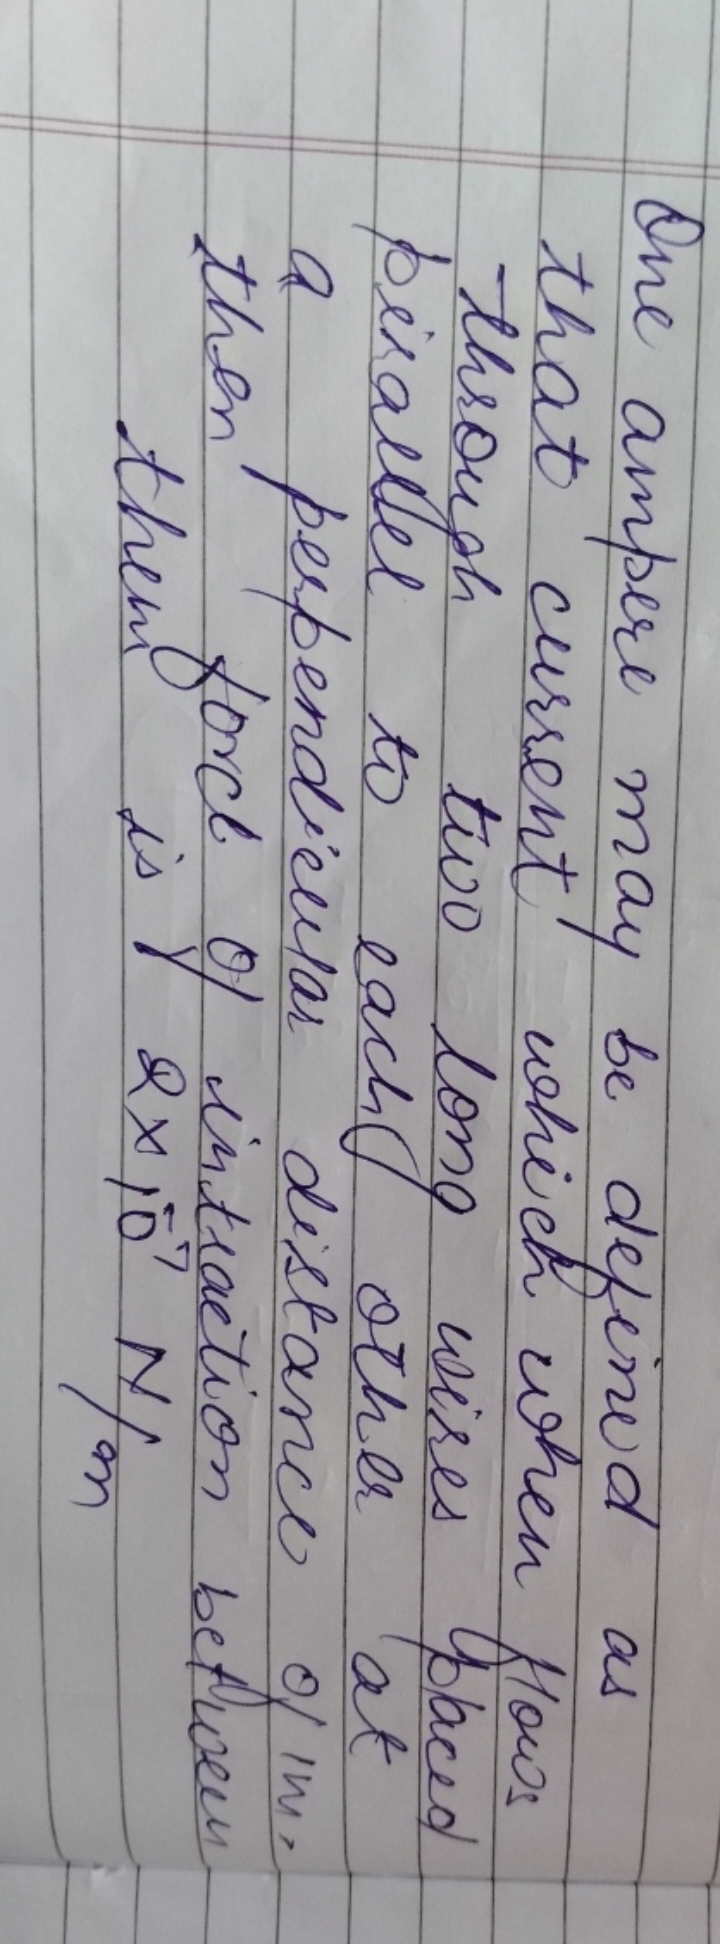 One ampere may be defined as
that current which when flows
through two long wires placed
parallel to each other at
a perpendicular distance of 1m,
then force of intraction between
them is 2×10⁻⁷ N/m